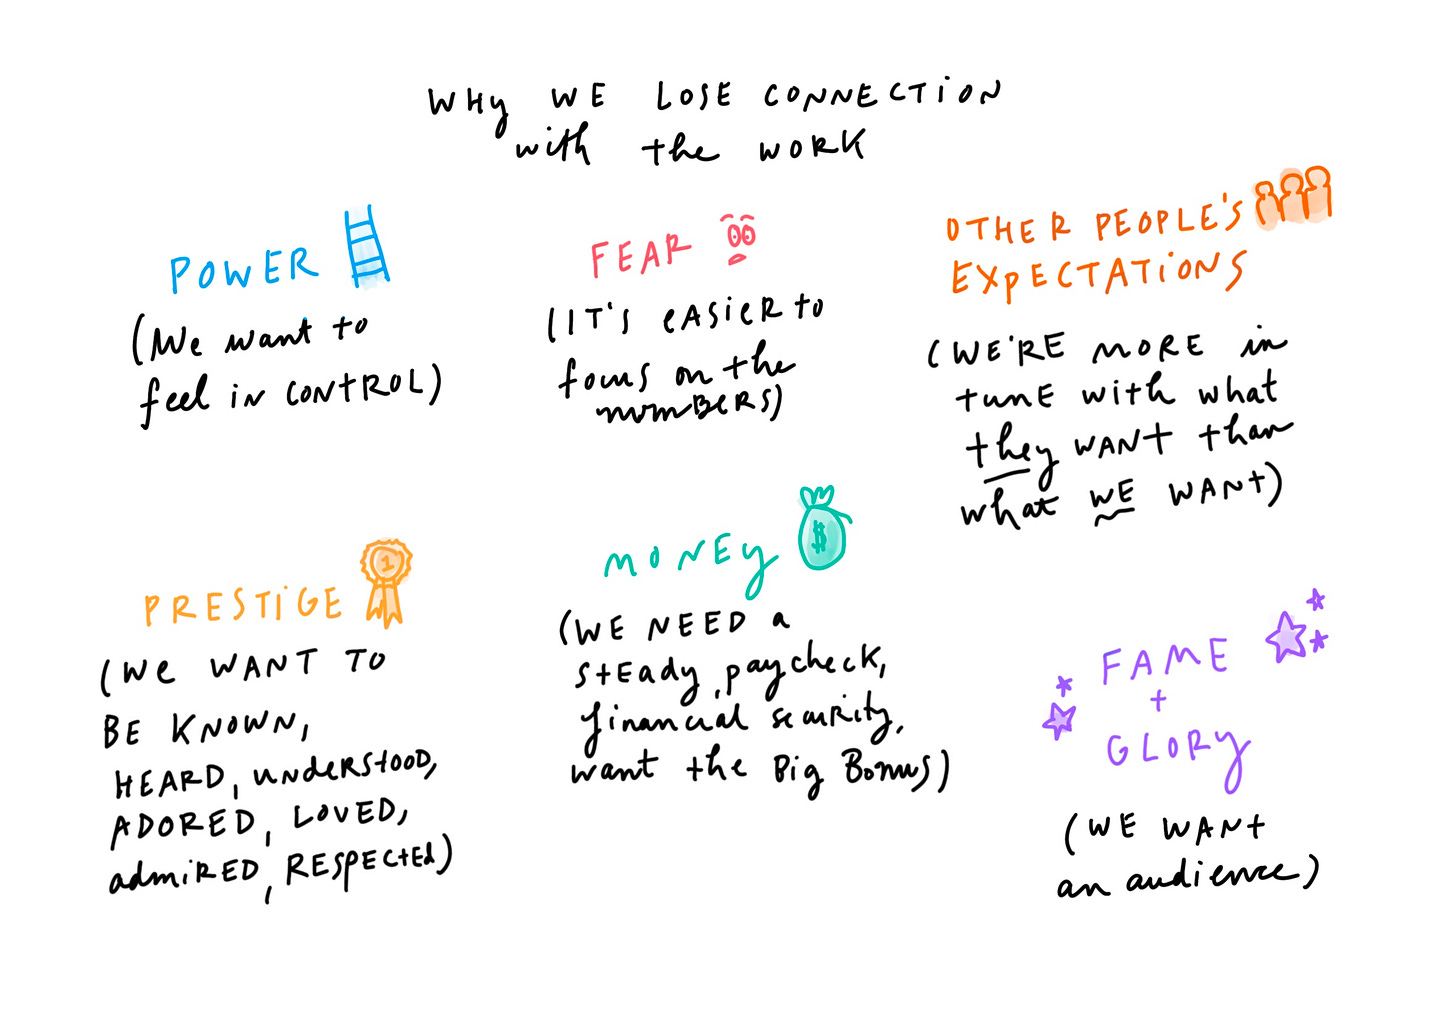 WHy WE LOSE CONNECTiON
with the WORK
POWER
(We want to
feel iN CONtROL)
FEAR
(IT'S eASieR to
focus on the
numBERS)
OTHER PEOPLE'S
EXPECTATiONS
(WE'RE MORE in
tunE with what
they WANt than
what WE WANt)
PRESTiGE
1
(We WANT TO
BE KNOWN,
HEARD, unDeRStOOD,
ADORED, LOVED,
admiRED, RESPECtEd)
MONEy
$
(WE NEED a
StEAdy paycheck,
financial security,
want the Big Bonus)
FAME
+
GLORy
(WE WANt
an audience)